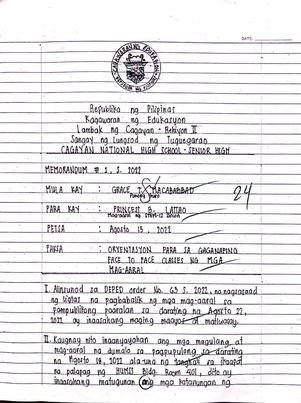 DATE:
Republika ng Pilipinas
Kagawaran ng Edukasyon
Lambak ng Cagayan - Rehiyon II
Sangay ng Lungsod ng Tuguegarao
CAGAYAN NATIONAL HIGH SCHOOL - SENIOR HIGH
MEMORANDUM # 1, S. 2022
MULA KAY : GRACE T. MACABABBAD
Punong Guro
24
PARA KAY : PRINCESS B. LATTAO
Mag-aaral ng STEM-12
PETSA : Agosto 15, 2022
PAKSA : ORYENTASYON PARA SA GAGANAPING
FACE TO FACE CLASSES NG MGA
MAG-AARAL
I. Alinsunod sa DEPED order No. 63 S. 2022, na nagsasaad
ng ligtas na pagbabalik ng mga mag-aaral sa
pampublikong paaralan sa darating na Agosto 22,
2022 ay inaasahang maging maayos at matiwasay.
II. Kaugnay nito inaanyayahan ang mga magulang at
mag-aaral na dumalo sa pagpupulong sa darating
na Agosto 18, 2022 ala una ng tanghali sa ikaapat
na palapag ng HUMSS Bldg. Room 401, dito ay
inaasahang matugunan ang mga katanungan ng